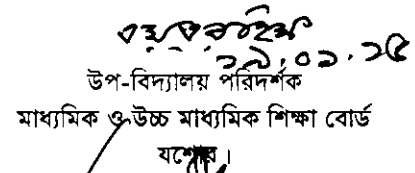 ২৯.০১.১৫
উপ-বিদ্যালয় পরিদর্শক
মাধ্যমিক ও উচ্চ মাধ্যমিক শিক্ষা বোর্ড
যশোর।